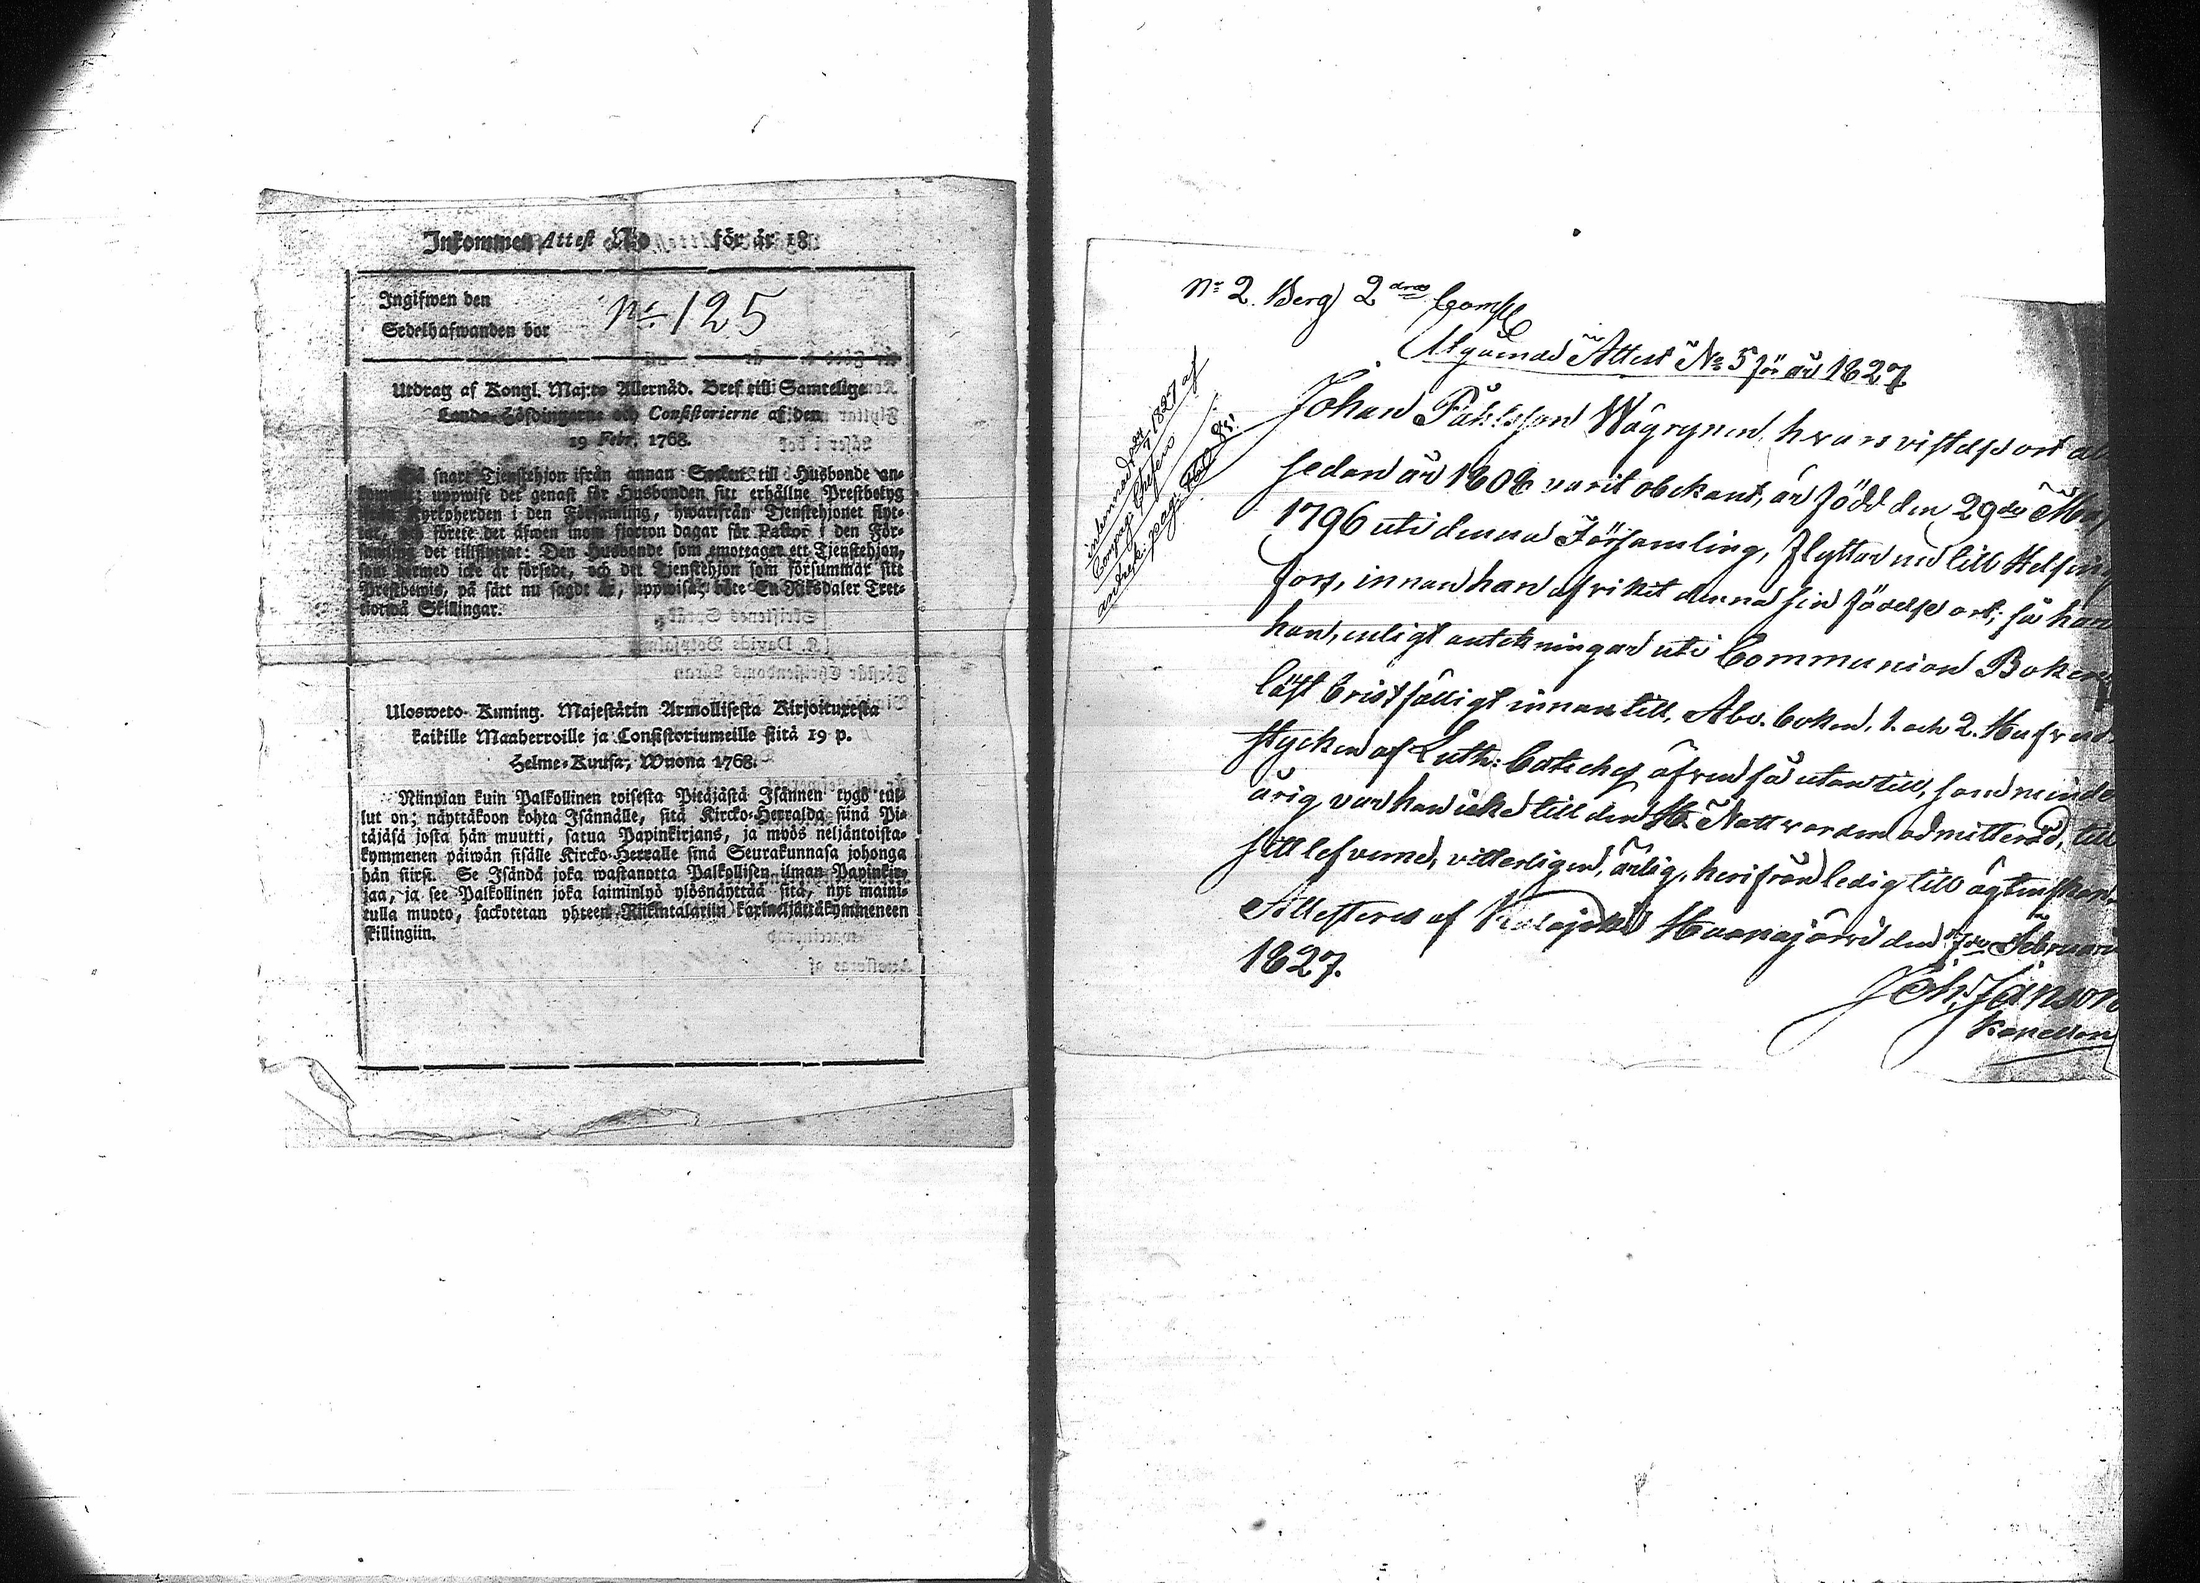 Inkommen Attest No för år 18
Ingifwen den
Sedelhafwanden bor
No 125
Utdrag af Kongl. Maj:ts Allernåd. Bref till Samtelige
Lands-Höfdingarne och Consistorierne af den
19 Febr. 1768.
Så snart Tjenstehjon ifrån annan Socken till Husbonde an-
kommit; uppwise det genast för Husbonden sitt erhållne Prestbetyg
från Kyrkoherden i den Församling, hwarifrån Tjenstehjonet flyt-
tat, och förete det äfwen inom fjorton dagar för Pastor i den För-
samling det tillflyttat: Den Husbonde som emottager ett Tjenstehjon,
som dermed icke är försedt, och det Tjenstehjon som försummar sitt
Prestbewis, på sätt nu sagdt är, uppwisa, böte En Riksdaler Tret-
tiotwå Skillingar.
Ulosweto Kuning. Majestätin Armollisesta Kirjoituxesta
kaikille Maaherroille ja Consistoriumeille siitä 19 p.
Helme-Kuusa, Wuona 1768.
Niinpian kuin Palkollinen toisesta Pitäjästä Isännen tygö tul-
lut on; näyttäkoon kohta Isännälle, sitä Kircko-Herralda siinä Pi-
täjäsä josta hän muutti, satua Papinkirjans, ja myös neljäntoista-
kymmenen päiwän sisälle Kircko-Herralle siinä Seurakunnasa johonga
hän siirsi. Se Isändä joka wastanotta Palkollisen ilman Papinkir-
jaa, ja see Palkollinen joka laiminlyö ylösnäyttää sitä, nyt maini-
tulla muoto, sackotetan yhteen Riikintalariin kaxineljättäkymmeneen
skillingiin.
No 2. Berg 2dra Comp
Utgående Attest No 5 för år 1827
Johan Påhlsson Wägrynen, hvars vistelse ort al
sedan år 1808 varit obekant, är född den 29de Maj
1796 uti denna Församling, flyttar nu till Helsing
fors, innan han afvikit denna sin födelse ort; så har
han, enligt antekningar uti Communion Boken
läst Cristfälligt innantill, Abc. boken, 1. och 2. Hufvud
stycken af Luth: Cateches äfven så utantill, som minder
årig var han icke till den H. Nattvarden admitterad, till
sitt lefverne, vitterligen, ärlig, herifrån ledig till ägtenskap,
Attesteras af Kuolajoki Kuonajärvi den 7de Februari
1827.
Joh. Janson